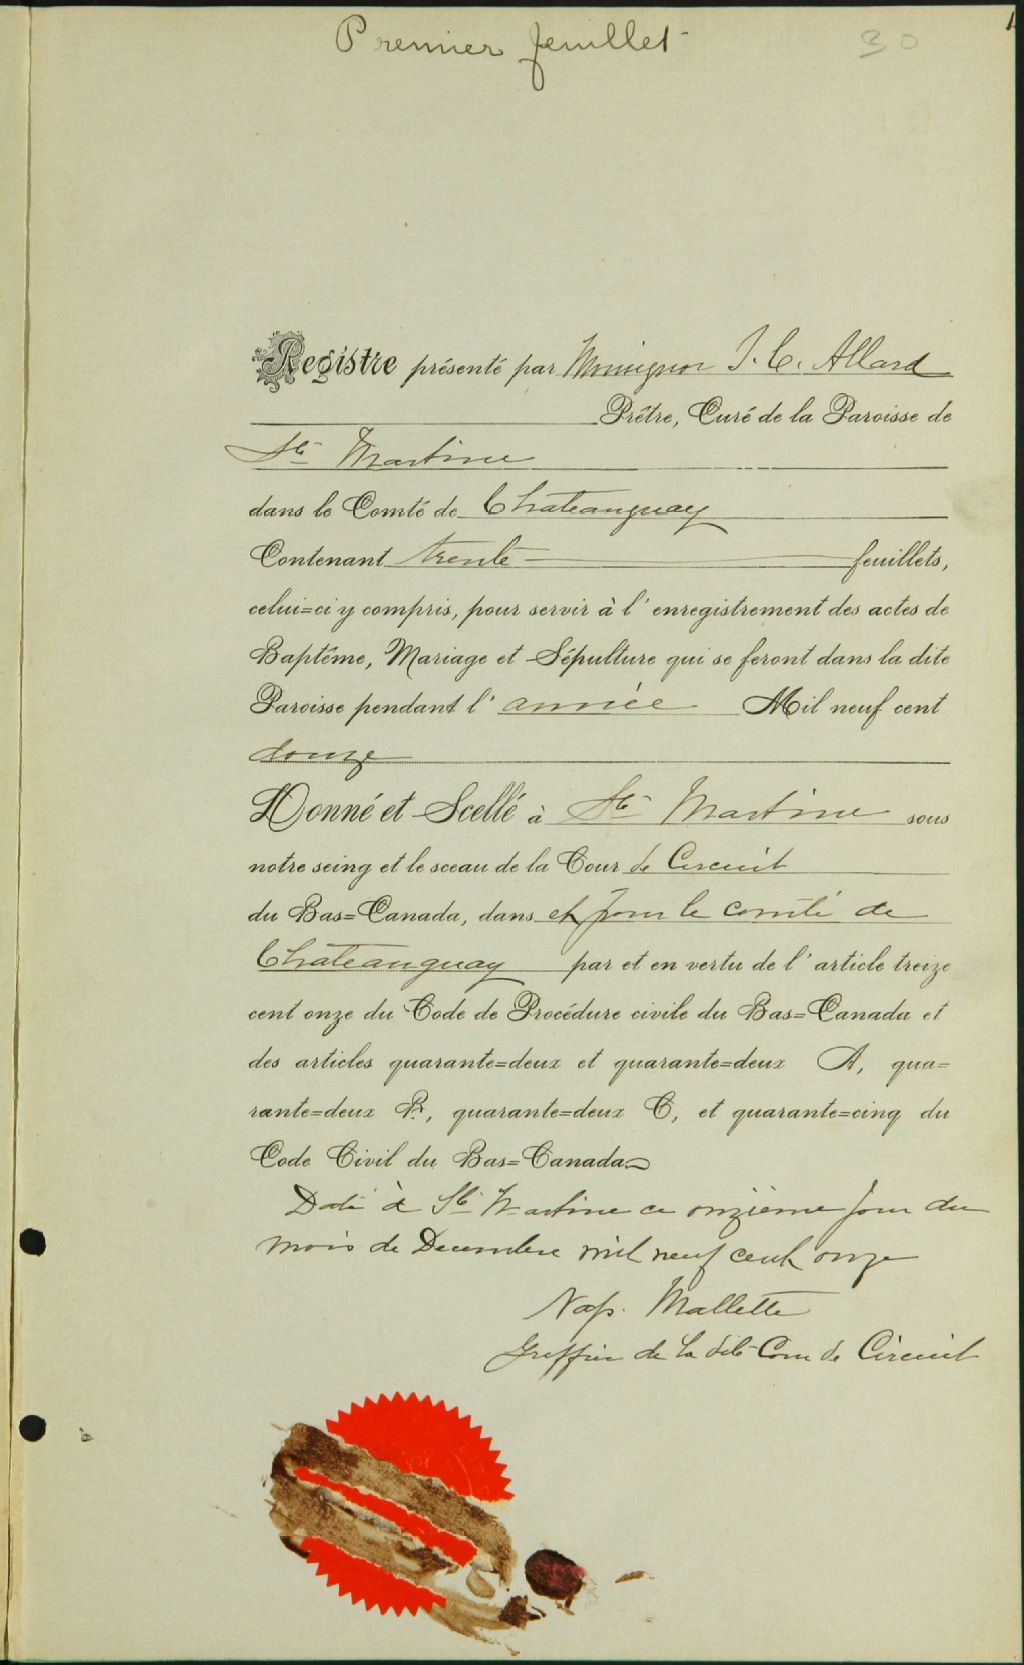 Premier feuillet 30
Registre présenté par Monsignor J. C. Allard
Prêtre, Curé de la Paroisse de
Ste Martine
dans le Comté de Chateauguay
Contenant trente feuillets,
celui=ci y compris, pour servir à l'enregistrement des actes de
Baptême, Mariage et Sépulture qui se feront dans la dite
Paroisse pendant l'année Mil neuf cent
douze
Donné et Scellé à Ste Martine sous
notre seing et le sceau de la Cour de Circuit
du Bas=Canada, dans et pour le comté de
Châteauguay par et en vertu de l'article treize
cent onze du Code de Procédure civile du Bas=Canada et
des articles quarante=deux et quarante=deux A, qua=
rante=deux B, quarante=deux C, et quarante=cinq du
Code Civil du Bas=Canada
Daté à Ste Martine ce onzième jour du
mois de Decembre mil neuf cent onze
Nap. Mallette
Greffier de la dite Cour de Circuit